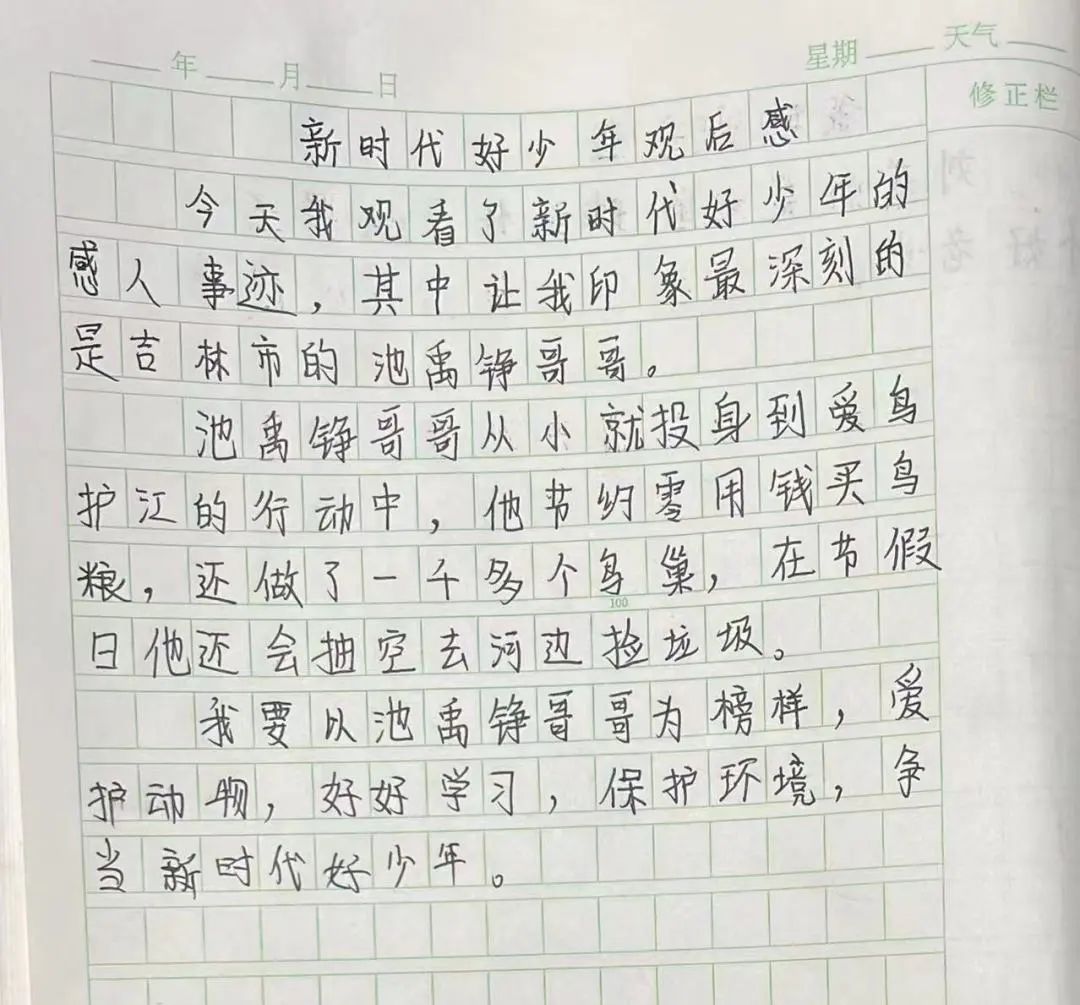 年 月 日 星期 天气
修正栏
新时代好少年观后感
今天我观看了新时代好少年的
感人事迹，其中让我印象最深刻的
是吉林市的池禹铮哥哥。
池禹铮哥哥从小就投身到爱鸟
护江的行动中，他节约零用钱买鸟
粮，还做了一千多个鸟巢，在节假
100
日他还会抽空去河边捡垃圾。
我要以池禹铮哥哥为榜样，爱
护动物，好好学习，保护环境，争
当新时代好少年。